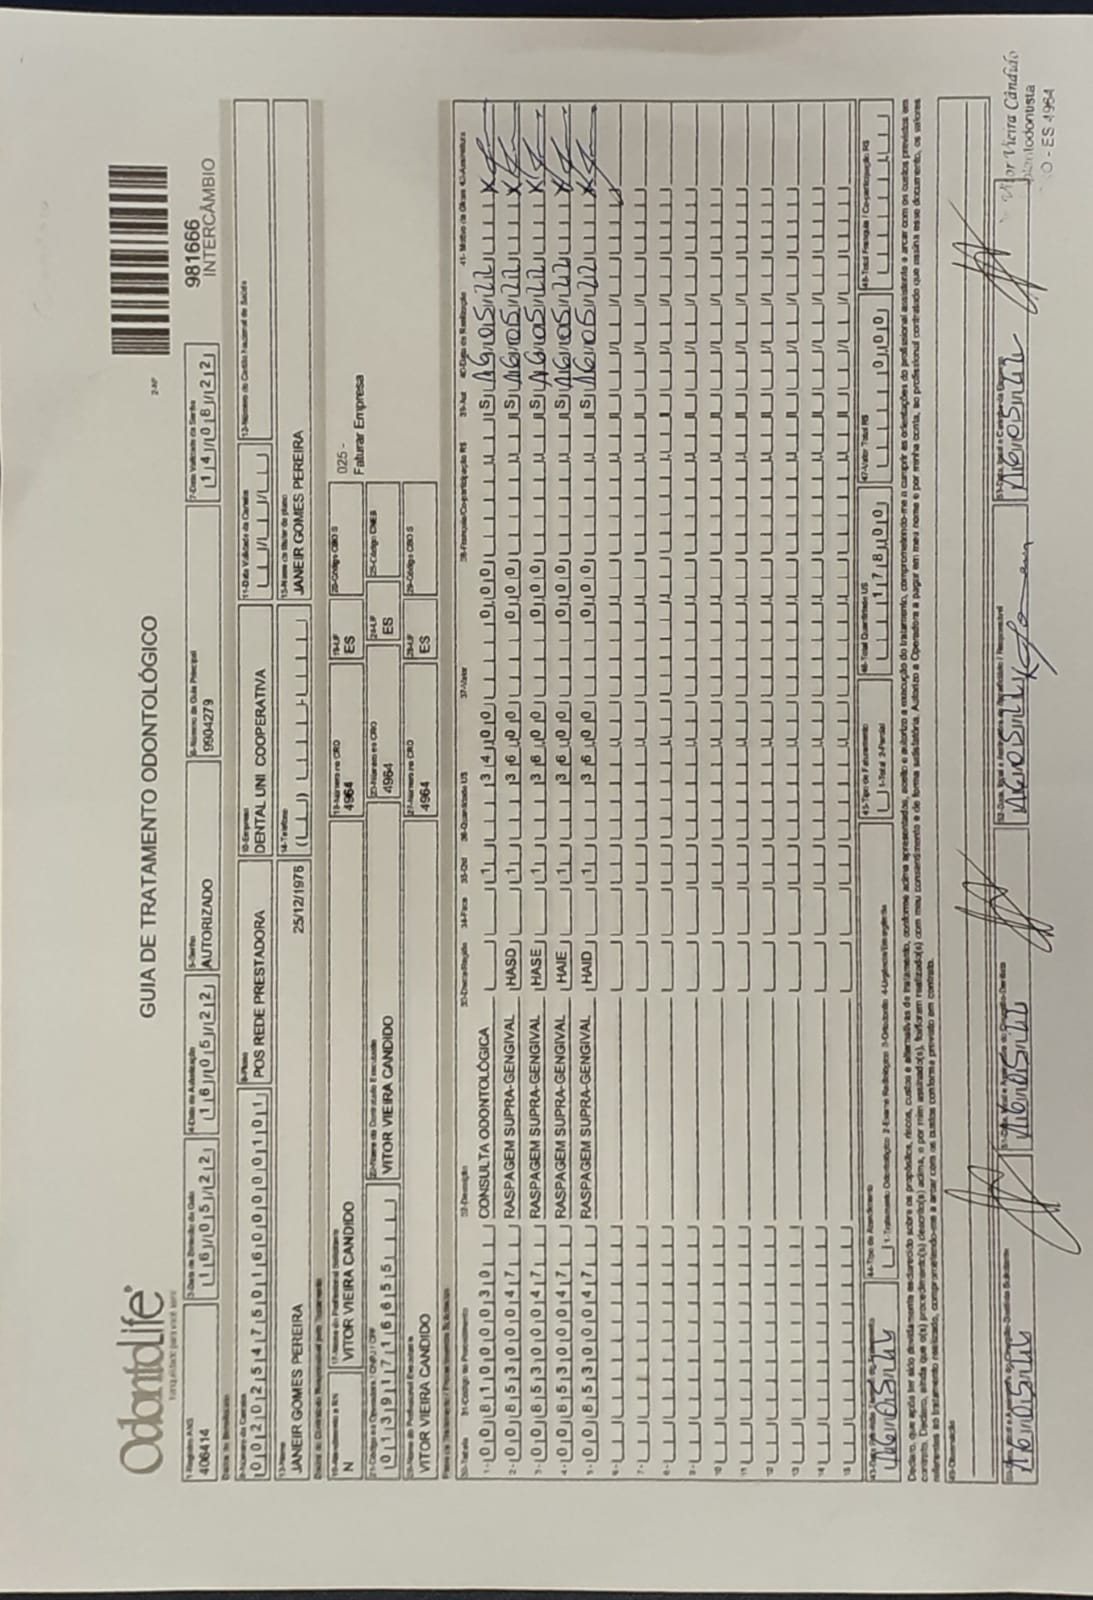 OdontoLife®
GUIA DE TRATAMENTO ODONTOLÓGICO
2-NF
981666
INTERCÂMBIO
1-Registro ANS
406414
3-Data de Emissão da Guia
16/05/22
4-Data de Autorização
16/05/22
5-Senha
AUTORIZADO
6-Número da Guia Principal
9904279
7-Data Validade da Senha
14/08/22
Dados do Beneficiário
8-Número da Carteira
00202547501600000101
9-Plano
POS REDE PRESTADORA
10-Empresa
DENTAL UNI COOPERATIVA
11-Data Validade da Carteira
12-Número do Cartão Nacional de Saúde
13-Nome
JANEIR GOMES PEREIRA
25/12/1976
14-Telefone
15-Nome do titular do plano
JANEIR GOMES PEREIRA
16-Atendimento a RN
N
17-Nome do Profissional Solicitante
VITOR VIEIRA CANDIDO
18-Número no CRO
4964
19-UF
ES
20-Código CBO S
025 -
Faturar Empresa
21-Código na Operadora / CNPJ / CPF
01391716655
22-Nome do Contratado Executante
VITOR VIEIRA CANDIDO
23-Número no CRO
4964
24-UF
ES
25-Código CNES
26-Nome do Profissional Executante
VITOR VIEIRA CANDIDO
27-Número no CRO
4964
28-UF
ES
29-Código CBO S
30-Tabela 31-Código do Procedimento 32-Descrição 33-Dente/Região 34-Face 35-Qtd 36-Quantidade US 37-Valor 38-Franquia/Co-participação R$ 39-Aut 40-Data de Realização 41-Motivo da Glosa 42-Assinatura
1- 00 81000030 CONSULTA ODONTOLÓGICA 1 34,00 0,00 S 16/05/22
2- 00 85300047 RASPAGEM SUPRA-GENGIVAL HASD 1 36,00 0,00 S 16/05/22
3- 00 85300047 RASPAGEM SUPRA-GENGIVAL HASE 1 36,00 0,00 S 16/05/22
4- 00 85300047 RASPAGEM SUPRA-GENGIVAL HAIE 1 36,00 0,00 S 16/05/22
5- 00 85300047 RASPAGEM SUPRA-GENGIVAL HAID 1 36,00 0,00 S 16/05/22
6-
7-
8-
9-
10
11
12
13
14
15
16/05/22
44-Tipo de Atendimento
1-Tratamento Odontológico 2-Exame Radiológico 3-Ortodontia 4-Urgência/Emergência
45-Tipo de Faturamento
1-Total 2-Parcial
46-Total Quantidade US
178,00
47-Valor Total R$
0,00
48-Total Franquia / Co-participação R$
Declaro, que após ter sido devidamente esclarecido sobre os propósitos, riscos, custos e alternativas de tratamento, conforme acima apresentados, aceito e autorizo a execução do tratamento, comprometendo-me a cumprir as orientações do profissional assistente e arcar com os custos previstos em
contrato. Declaro, ainda que o(s) procedimento(s) descrito(s) acima, e por mim assinado(s), foi/foram realizado(s) com meu consentimento e de forma satisfatória. Autorizo a Operadora a pagar em meu nome e por minha conta, ao profissional contratado que assina esse documento, os valores
referentes ao tratamento realizado, comprometendo-me a arcar com os custos conforme previsto em contrato.
49-Observação
16/05/22
16/05/22
16/05/22
16/05/22
Vitor Vieira Cândido
- ES 4964